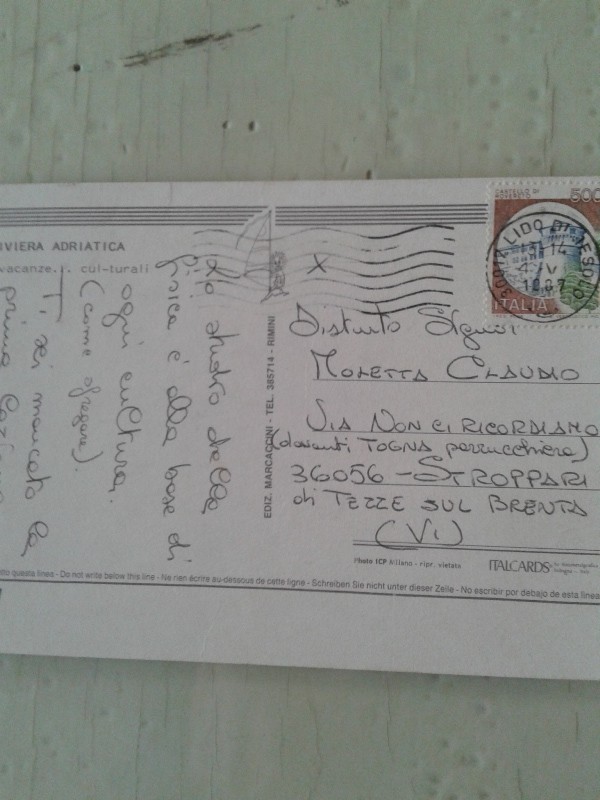 RIVIERA ADRIATICA
vacanze... cul-turali
Lo studio della
fisica è alla base di
ogni cultura.
(come sfregare).
Ti sei mancata la
prima
EDIZ. MARCACCINI - TEL. 385714 - RIMINI
CASTELLO DI
ROVERETO
500
ITALIA
30017 LIDO DI JESOLO
14
1987
X
Distinto Signor
MOLETTA CLAUDIO
VIA NON CI RICORDIAMO
(davanti TOGNA parrucchiera)
36056 - STROPPARI
di TEZZE SUL BRENTA
(VI)
Photo ICP Milano - ripr. vietata
ITALCARDS
sotto questa linea - Do not write below this line - Ne rien écrire au-dessous de cette ligne - Schreiben Sie nicht unter dieser Zeile - No escribir por debajo de esta linea